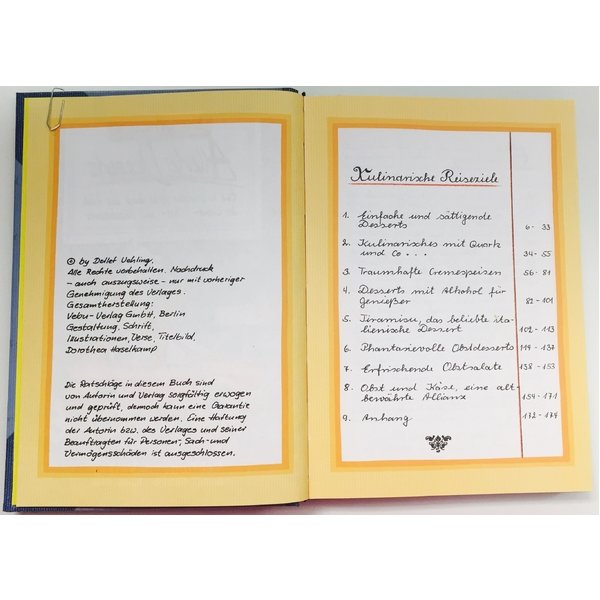 © by Detlef Uehling,
Alle Rechte vorbehalten. Nachdruck
- auch auszugsweise - nur mit vorheriger
Genehmigung des Verlages.
Gesamtherstellung:
Vebu-Verlag GmbH, Berlin
Gestaltung, Schrift,
Illustrationen, Verse, Titelbild,
Dorothea Haselkamp
Die Ratschläge in diesem Buch sind
von Autorin und Verlag sorgfältig erwogen
und geprüft, dennoch kann eine Garantie
nicht übernommen werden. Eine Haftung
der Autorin bzw. des Verlages und seiner
Beauftragten für Personen-, Sach- und
Vermögensschäden ist ausgeschlossen.
Kulinarische Reiseziele
1. Einfache und sättigende
Desserts 6 - 33
2. Kulinarisches mit Quark
und Co . . . 34 - 55
3. Traumhafte Cremespeisen 56 - 81
4. Desserts mit Alkohol für
Genießer 82 - 101
5. Tiramisu, das beliebte ita-
lienische Dessert 102 - 113
6. Phantasievolle Obstdesserts 114 - 137
7. Erfrischende Obstsalate 138 - 153
8. Obst und Käse, eine alt-
bewährte Allianz 154 - 171
9. Anhang 172 - 174